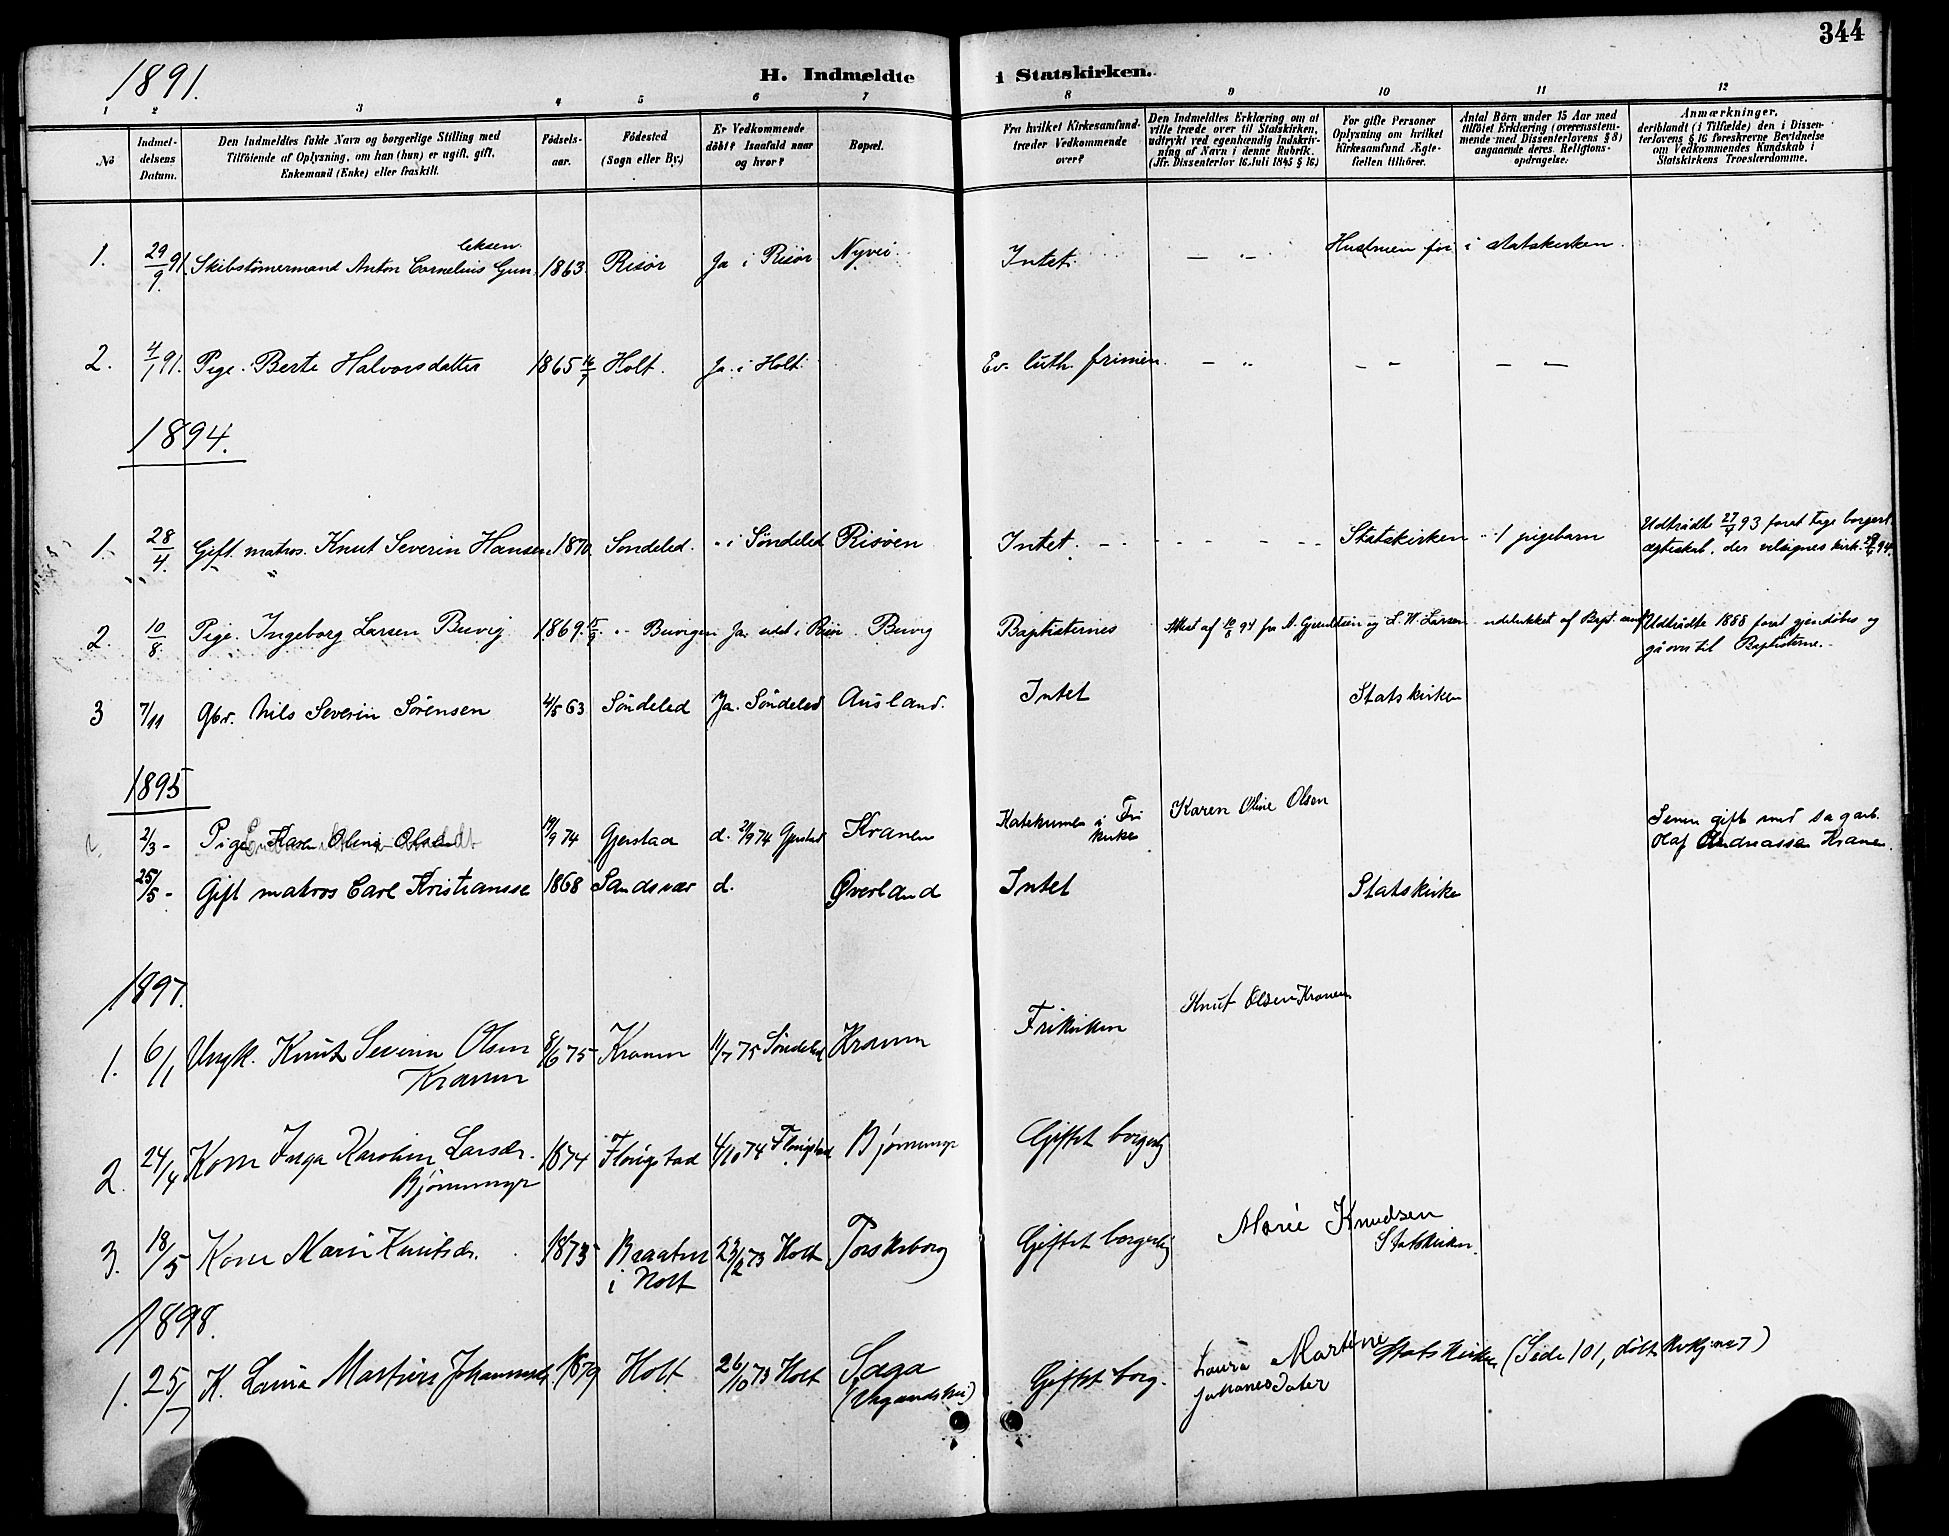 344
1891.
H. Indmeldte i Statskirken.
1 2 3 4 5 6 7 8 9 10 11 12
No
Indmel-
delsens
Datum.
Den Indmeldtes fulde Navn og borgerlige Stilling med
Tilföiende af Oplysning, om han (hun) er ugift, gift,
Enkemand (Enke) eller fraskilt.
Födsels-
aar.
Födested
(Sogn eller By.)
Er Vedkommende
döbt? Isaafald naar
og hvor?
Bopæl.
Fra hvilket Kirkesamfund
træder Vedkommende
over?
Den Indmeldtes Erklæring om at
ville træde over til Statskirken,
udtrykt ved egenhændig Indskriv-
ning af Navn i denne Rubrik.
(Jfr. Dissenterlov 16. Juli 1845 § 16)
For gifte Personer
Oplysning om hvilket
Kirkesamfund Ægte-
fællen tilhörer.
Antal Börn under 15 Aar med
tilföiet Erklæring (overensstem-
mende med Dissenterlovens § 8)
angaaende deres Religions-
opdragelse.
Anmærkninger,
deriblandt (i Tilfælde) den i Dissen-
terlovens § 16 foreskrevne Bevidnelse
om Vedkommendes Kundskab i
Statskirkens Troeslærdomme.
1. 29/9 91. Skibstömermand Anton Cornelius Gun- 1863 Risör Ja i Risör Nyvei. Intet. — „ — Hustruen för i statskirken
leksen.
2. 4/1 91. Pige. Berte Halvorsdatter 1865 16/7 Holt. Ja. i Holt. Ev. luth. frimen. — „ — — — —
1894.
1. 28/4. Gift. matros. Knut Severin Hansen. 1870 Sondeled. - i Söndeled Risöen Intet. Statskirken 1 pigebarn Udtrådte 27/4 93 forat tage borgerl.
ægteskab, der velsignes kirk. 94.
2. 10/8. Pige. Ingeborg Larsen Buvig 1869. 15/9 Buvigen Ja. Buvig Baptisternes Attest af 10/8 94 fra og L. W. Larsen udelukket af Bapt. Udtrådte 1888 forat gjendöbes og
gå over til Baptisterne.
3 7/11 Gbr. Nils Severin Sörensen 4/5 63 Söndeled Ja. Söndeled Ausland. Intet Statskirken
1895
2/3 - Pige Karen Oline Olsen 19/9 74 Gjerstad d. 2/9 74 Gjerstad Kranen i Fri
kirke Karen Oline Olsen gift med sagarb.
Olaf Andreassen Kranen.
25/5 - Gift matros Carl Kristiansen 1868 Sandsvær d. Øverland Intet Statskirke
1897.
1. 6/1 Ungk. Knut Severin Olsen 8/6 75 Kranen 11/7 75 Söndeled Kranen Frikirken Knut Olsen Kranen
Kranen
2. 24/4 Kone Inga Karoline Larsdr. 1874 Flosigstad 4/10 74 Flosigstad Bjørnmyr Giftet borgerlig
Bjørnmyr
3. 18/5 Kone Marie Knutsdr. 1873 Braaten
i Holt 23/2 73 Holt Torskeborg Giftet borgerlig Marie Knudsen
Statskirken.
1898.
1. 25/7 K. Laura Martine Johannesd. 1879 Holt 26/10 73 Holt Saga Giftet borg. Laura Martine
Johanesdater Statskirken (Side 101,